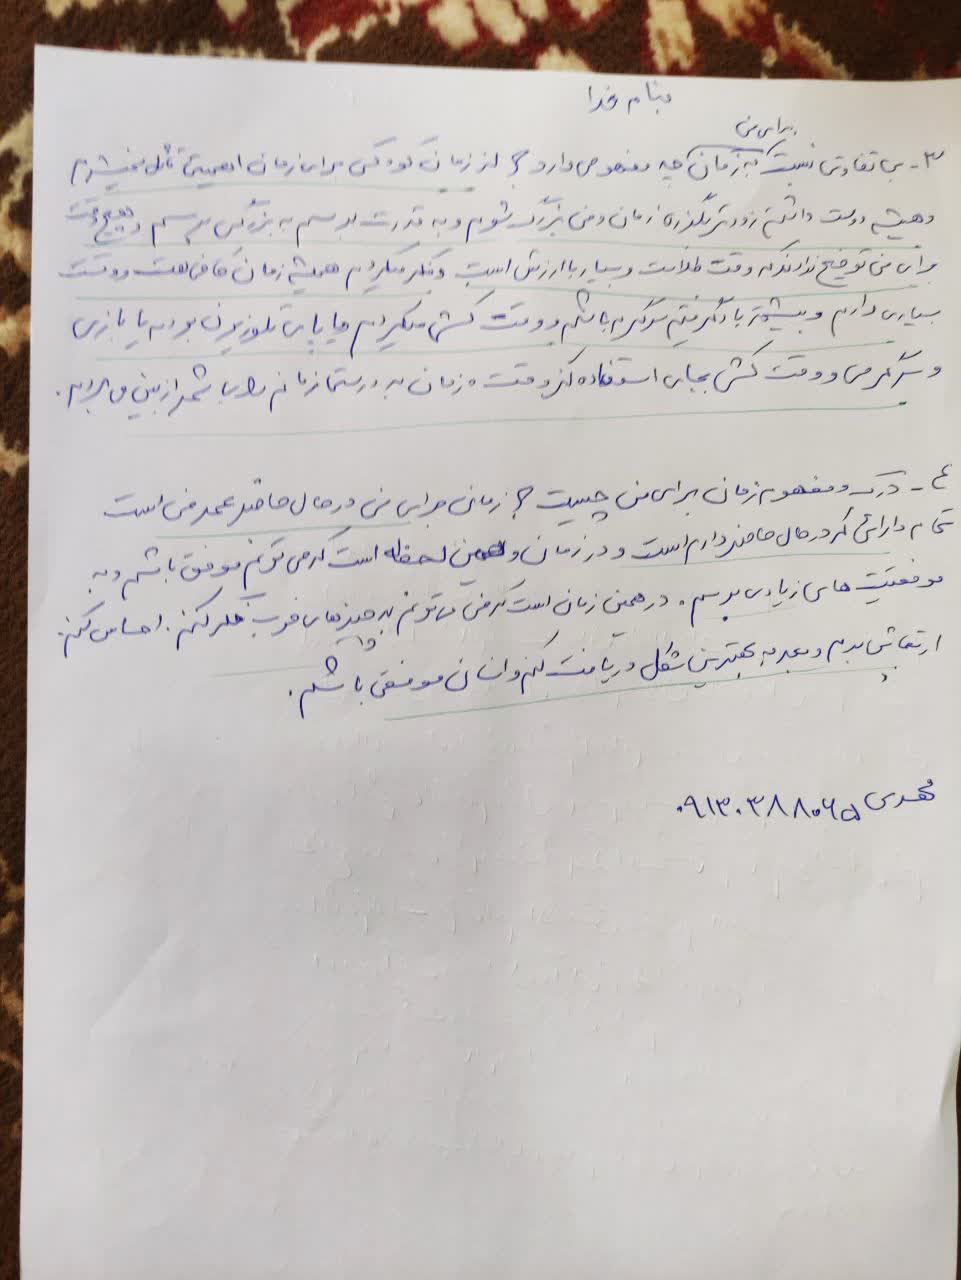 بنام خدا
برای من
۳- بی تفاوتی نسبت به زمان چه مفهومی دارد؟ از زمان کودکی برای زمان اهمیتی قائل نمیشدم
و همیشه دوست داشتم زودتر بگذره زمان و من بزرگ شوم و به قدرت برسم به بزرگی برسم و هیچوقت
برای من توضیح ندادند که وقت طلاست و بسیار با ارزش است و فکر میکردم همیشه زمان کافی هست و وقت
بسیاری دارم و بیشتر یاد گرفتم سرگرم باشم و وقت کشی میکردم یا پای تلوزیون بودم یا بازی
و سرگرمی و وقت کشی بجای استفاده از وقت و زمان به درستی زمانم را از بین می بردم.
۴- درک و مفهوم زمان برای من چیست؟ زمان برای من در حال حاضر عمر من است
تمام دارائی که در حال حاضر دارم است و در زمان و همین لحظه است که می توانم موفق باشم و به
موفقیت های زیادی برسم. در همین زمان است که من می توانم به چیزهای خوب فکر کنم. احساس کنم.
ارتعاش بدم و بعد به بهترین شکل دریافت کنم و انسان موفقی باشم.
مهدی ۰۹۱۳۰۳۸۸۰۶۵